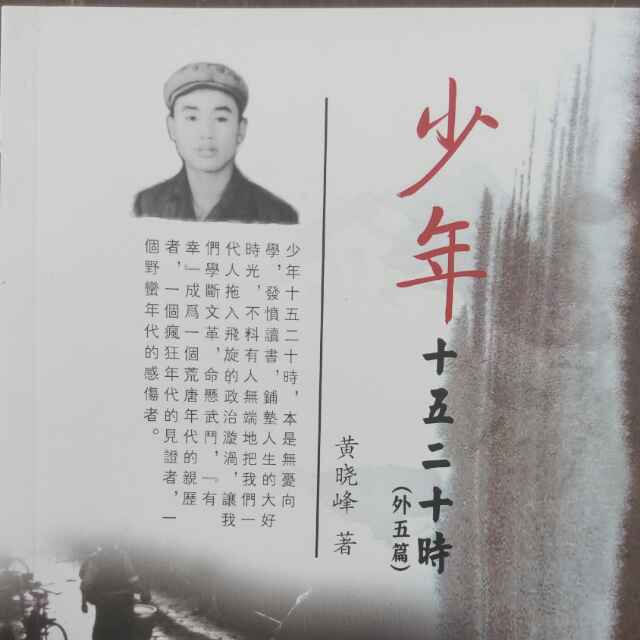 少年
十五二十時
(外五篇)
黄晓峰 著
少年十五二十時，本是無憂向
學，發憤讀書，鋪墊人生的大好
時光，不料有人無端地把我們一
代人拖入飛旋的政治漩渦，讓我
們學斷文革，命懸武鬥，『有
幸』成爲一個荒唐年代的親歷
者，一個瘋狂年代的見證者，一
個野蠻年代的感傷者。